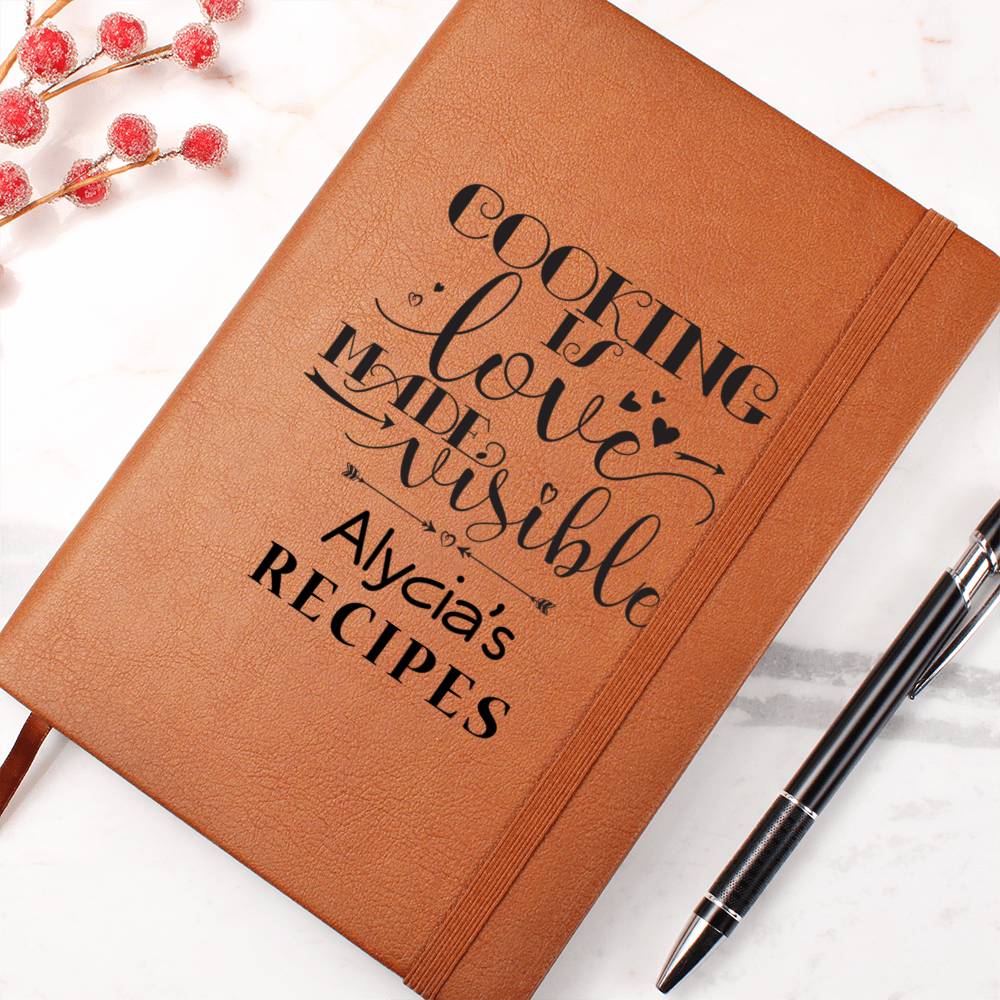 COOKING
IS
love
MADE
visible
Alycia's
RECIPES